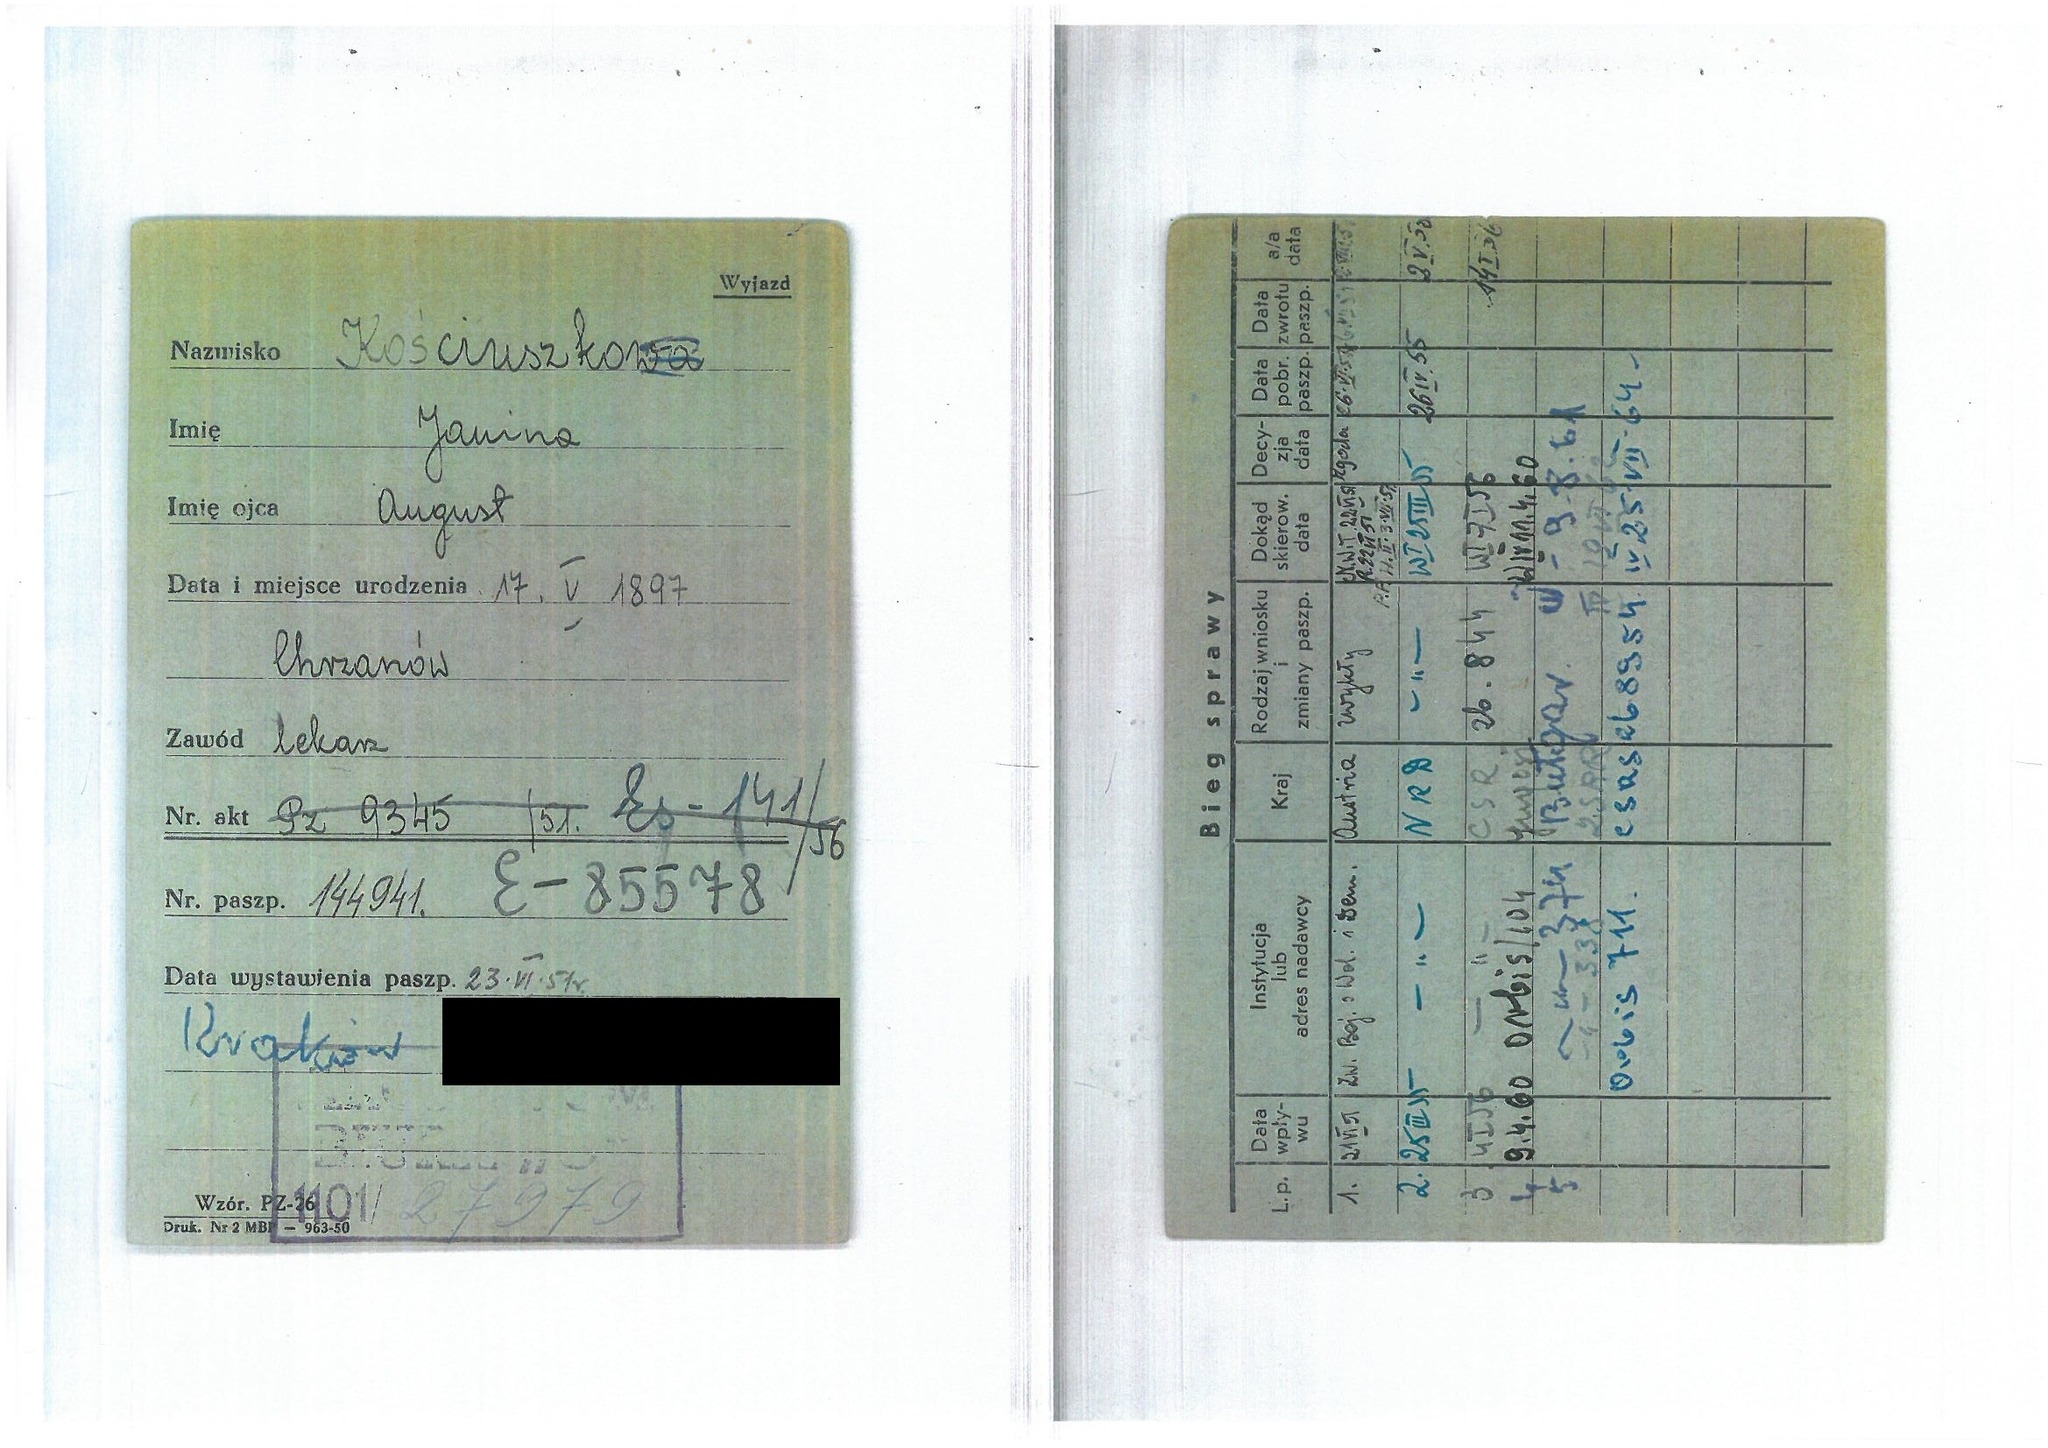 Wyjazd
Nazwisko Kościuszkowa
Imię Janina
Imię ojca August
Data i miejsce urodzenia 17. V 1897
Chrzanów
Zawód lekarz
Nr. akt Pz 9345 /51. Es - 141/56
Nr. paszp. 144941. E-85578
Data wystawienia paszp. 23.VI.51r.
Kraków
1101/27979
Wzór. PZ-26
Druk. Nr 2 MBP — 963-50
Bieg sprawy
L.p. Data wpły-wu Instytucja lub adres nadawcy Kraj Rodzaj wniosku i zmiany paszp. Dokąd skierow. data Decy-zja data Data pobr. paszp. Data zwrotu paszp. a/a data
1. 21VI51 Zw. Boj. o Wol. i Dem. Austria zwykły 22VI51 Zgoda 26.VI.51
R.22VI51
2. 25III55 - " - NRD - " - WI 25III55 26IV.55 2VI.56
3 4I56 - " - CSR 26.844 WI 7I56 14I56
4 9.4.60 Orbis/104 11.4.60
5 374 Bułgar. - 9.8.61
338 ZSRR IV
Orbis 711. CSRS 268954. IV 25-VII-64-